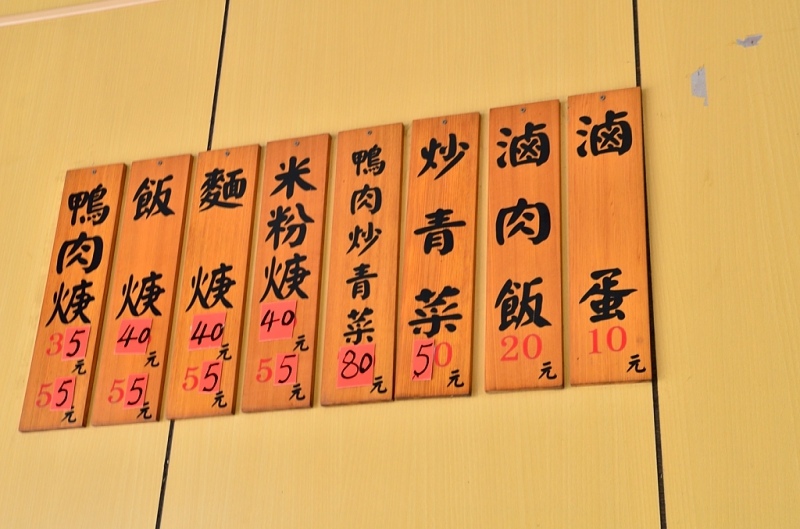 滷蛋
10元
滷肉飯
20元
炒青菜
50元
鴨肉炒青菜
80元
米粉焿
40元
55元
麵焿
40元
55元
飯焿
40元
55元
鴨肉焿
35元
55元